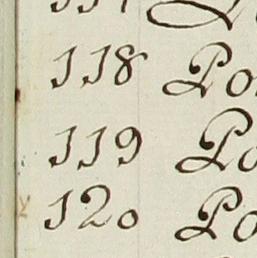 118 Po
119 Po
120 Po